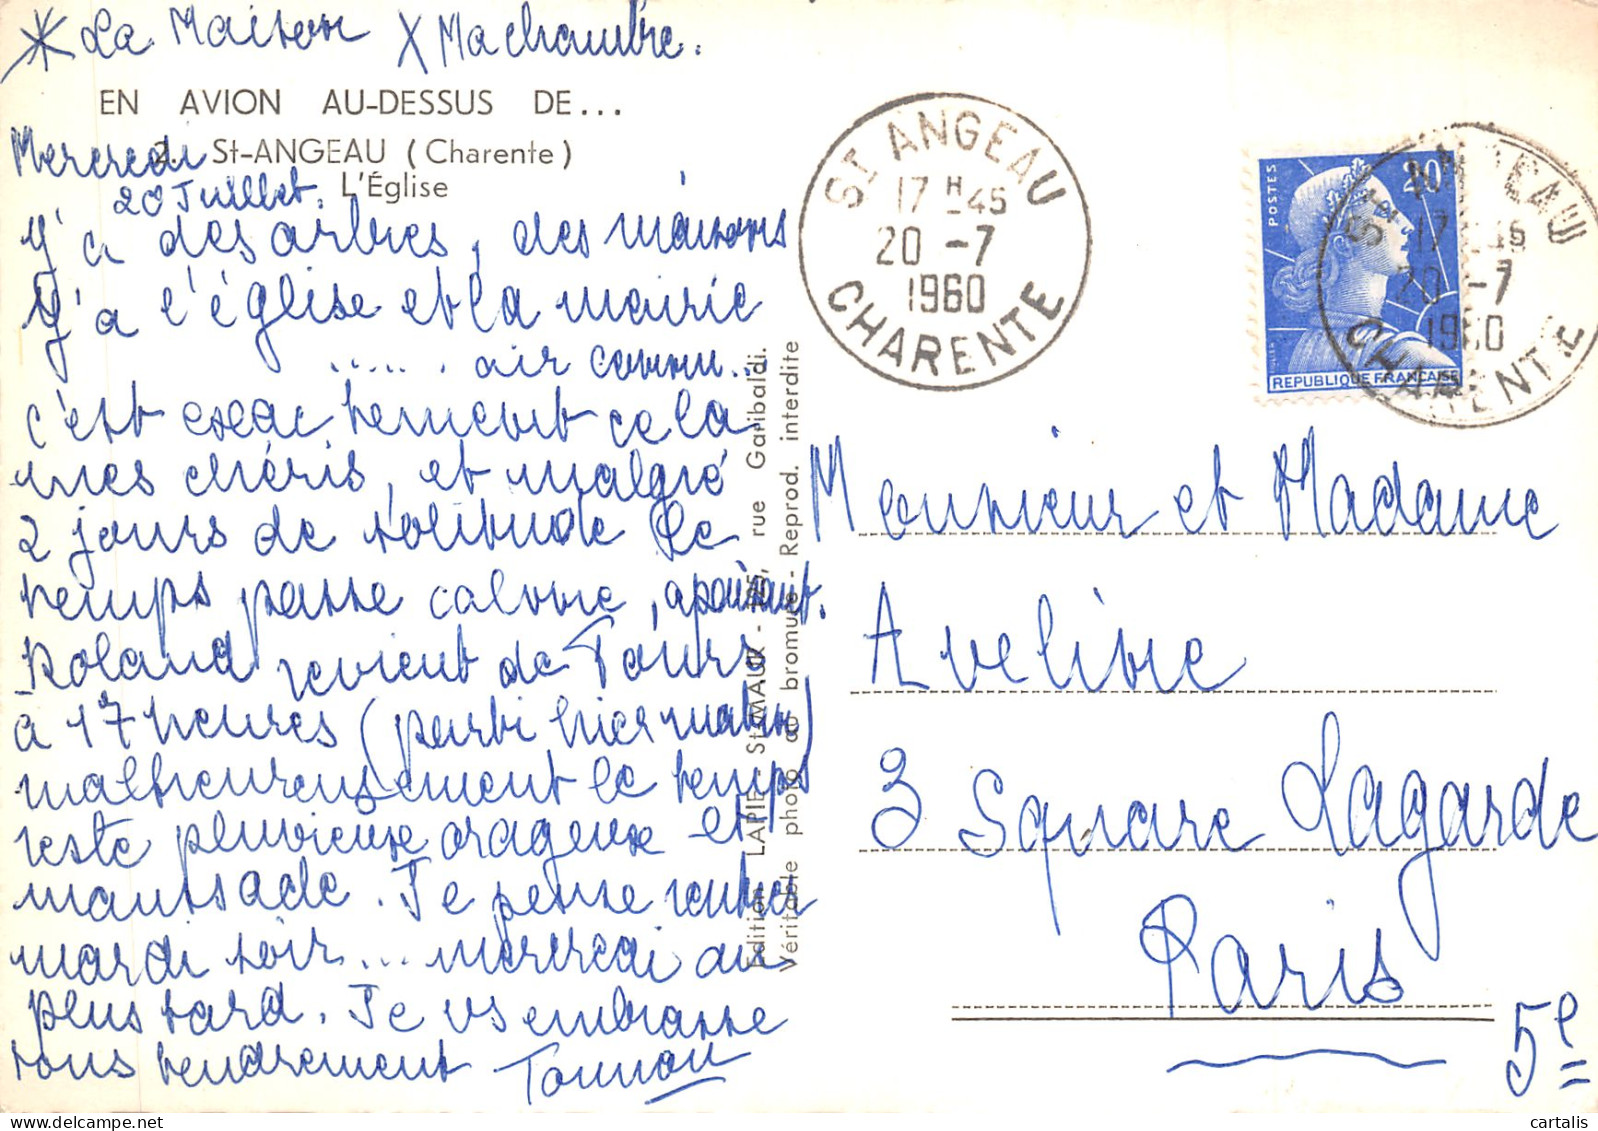 * La Maison X Ma chambre.
EN AVION AU-DESSUS DE...
2. St-ANGEAU (Charente)
L'Église
Mercredi
20 Juillet.
Y'a des arbres, des maisons
Y'a l'église et la mairie
..... air connu...
c'est exactement cela
mes chéris, et malgré
2 jours de solitude le
temps passe calme, apaisant.
Roland revient de Tours
à 17 heures (parti hier matin)
malheureusement le temps
reste pluvieux orageux et
maussade. Je pense rentrer
mardi soir... mercredi au
plus tard. Je vs embrasse
tous tendrement
Edition LAPIE - St-MAUR - 125, rue Garibaldi.
Véritable photo au bromure - Reprod. interdite
ST ANGEAU
17 H 45
20 -7
1960
CHARENTE
POSTES
20
REPUBLIQUE FRANCAISE
ST ANGEAU
17 H 45
20 -7
1960
CHARENTE
Monsieur et Madame
Aveline
3 Square Lagarde
Paris
5e
cartalis